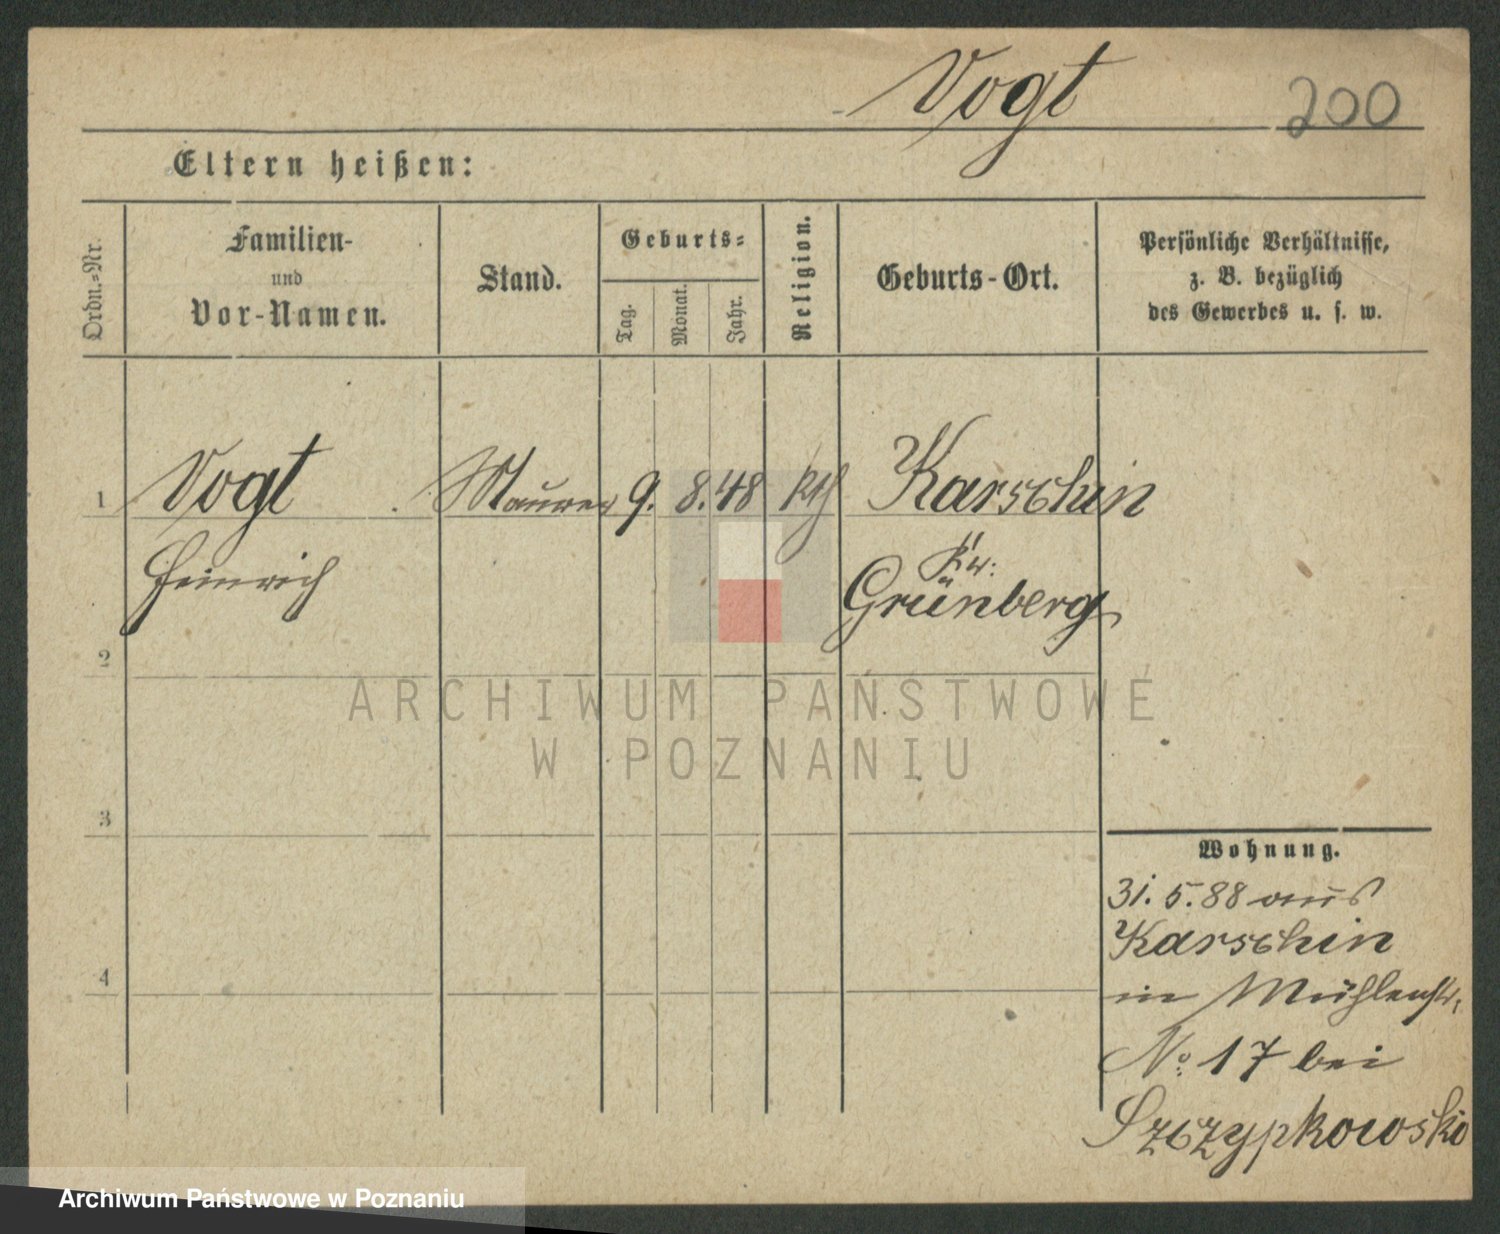 Vogt 200
Eltern heißen:
Ordn.-Nr.
Familien-
und
Vor-Namen.
Stand.
Geburts-
Tag.
Monat.
Jahr.
Religion.
Geburts-Ort.
Persönliche Verhältnisse,
z. B. bezüglich
des Gewerbes u. s. w.
1 Vogt Maurer 9. 8. 48 kth Karschin
Kr.
Heinrich Grünberg
2
ARCHIWUM PAŃSTWOWE
W POZNANIU
3
Wohnung.
31. 5. 88 aus
Karschin
4
in Mühlenstr.
No 17 bei
Szczypkowski
Archiwum Państwowe w Poznaniu